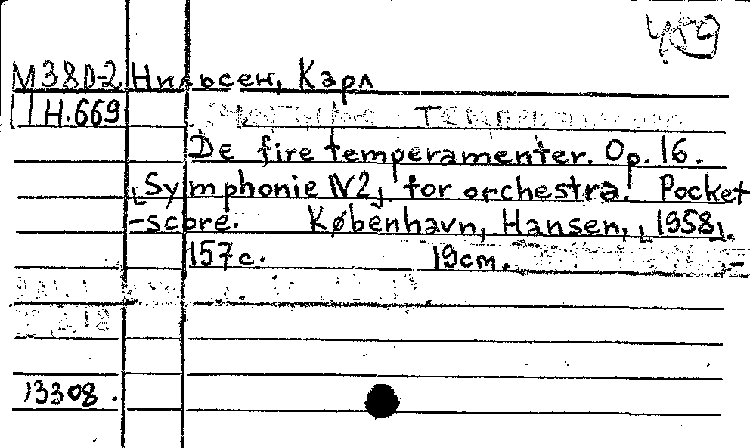 М38D-2 Нильсен, Карл
Н.669
De fire temperamenter. Op. 16.
[Symphonie N2] for orchestra. Pocket
-score. København, Hansen, [1958].
157с. 19cm.
13308.